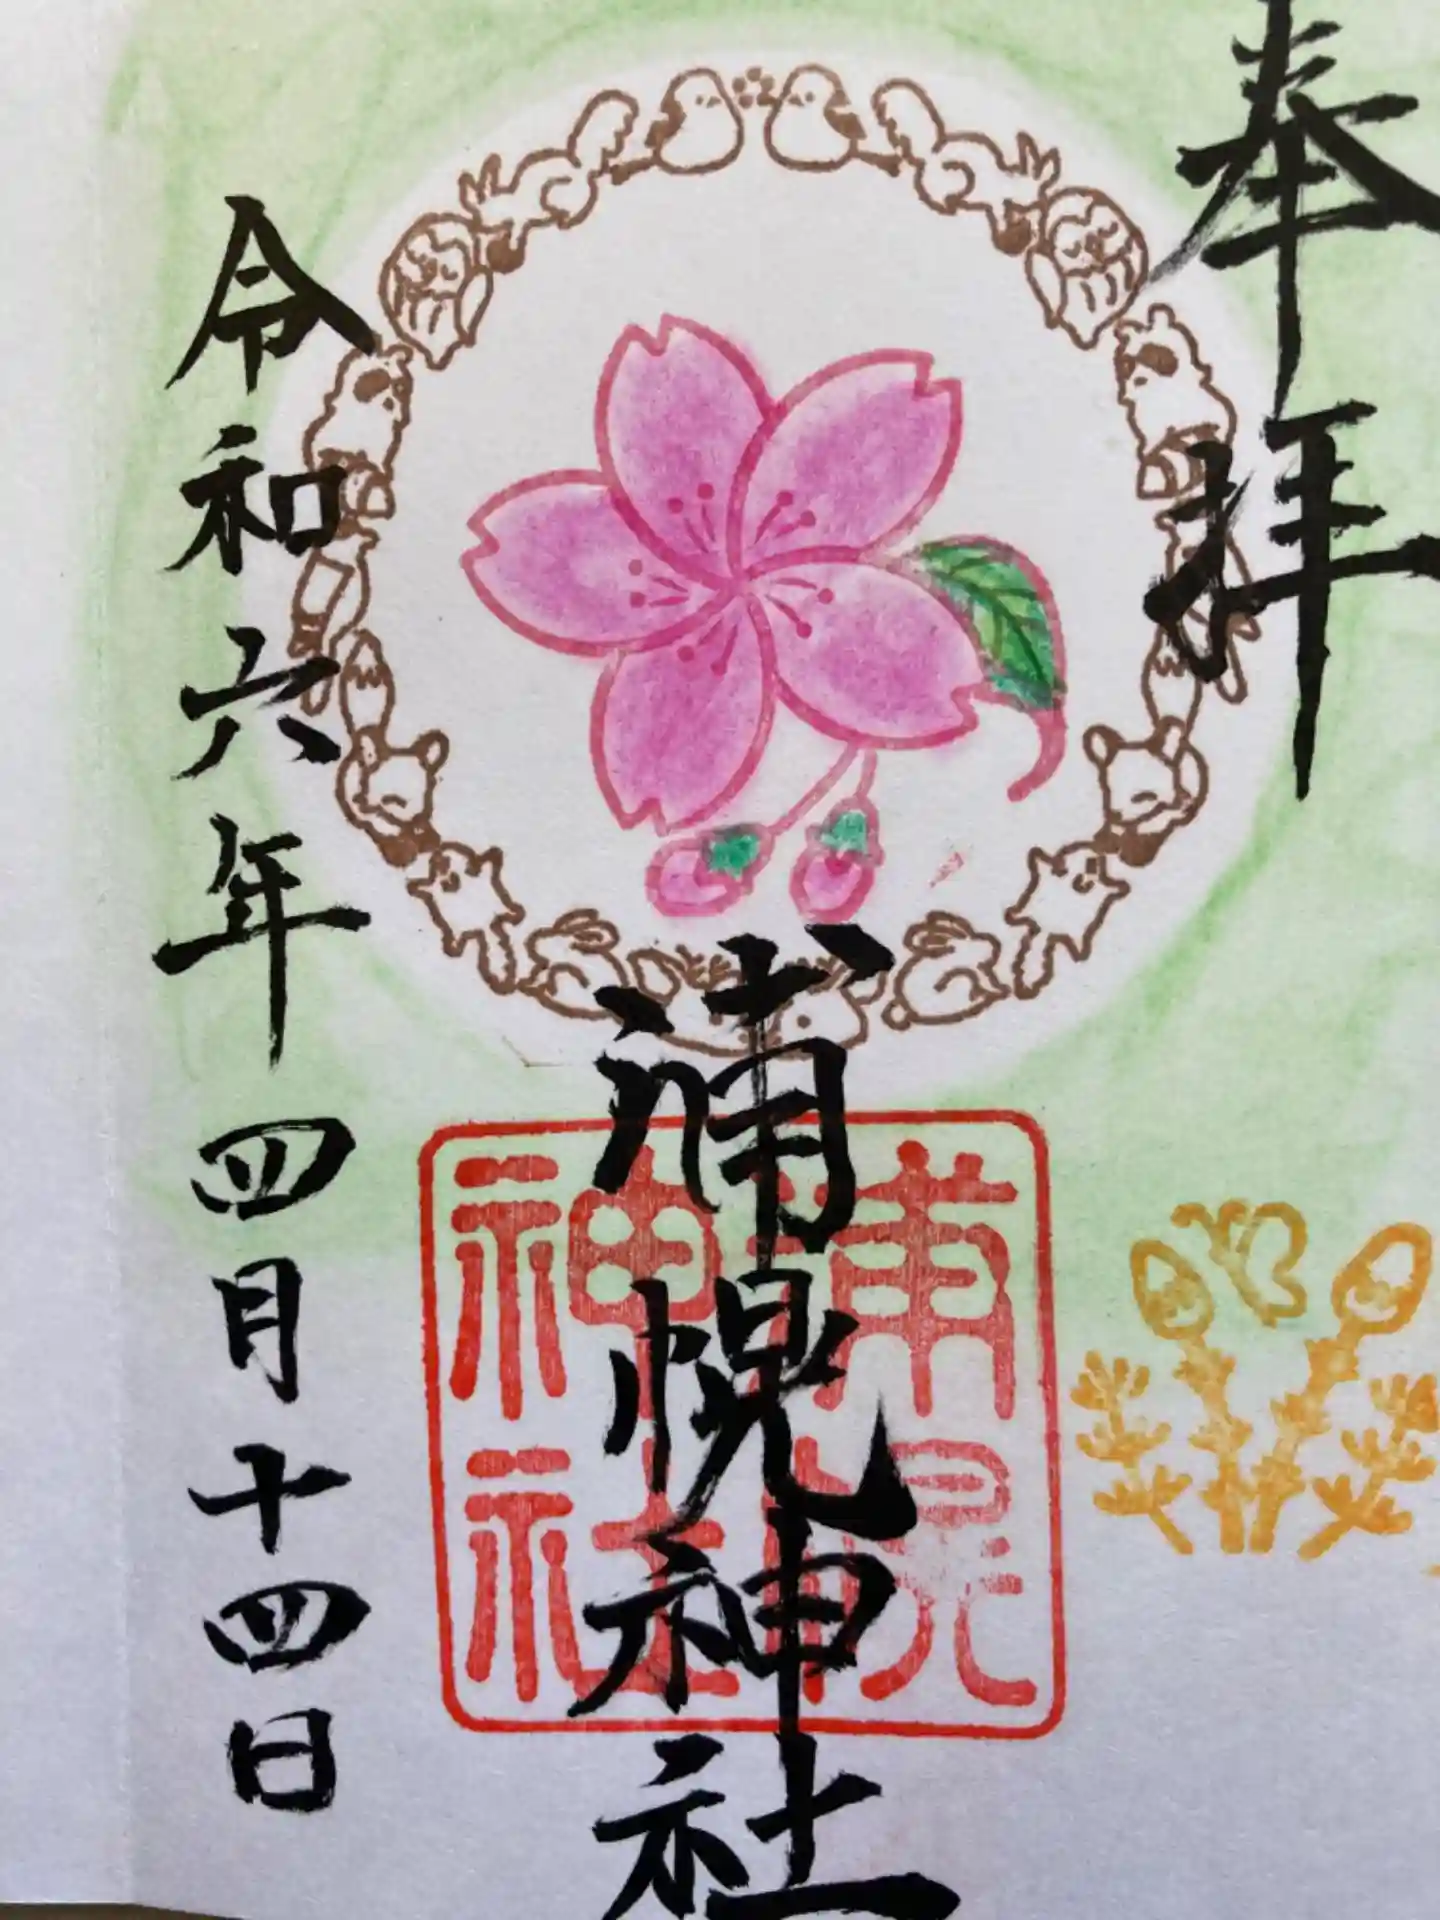 奉拝
浦幌神社
浦幌
神社
令和六年四月十四日